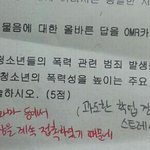 물음에 대한 올바른 답을 OMR카
청소년들의 폭력 관련 범죄 발생
청소년의 폭력성을 높이는 주요
하시오. (5점)
등에서 (과도한 학업
을 계속 접촉하였기 때문에 스트레